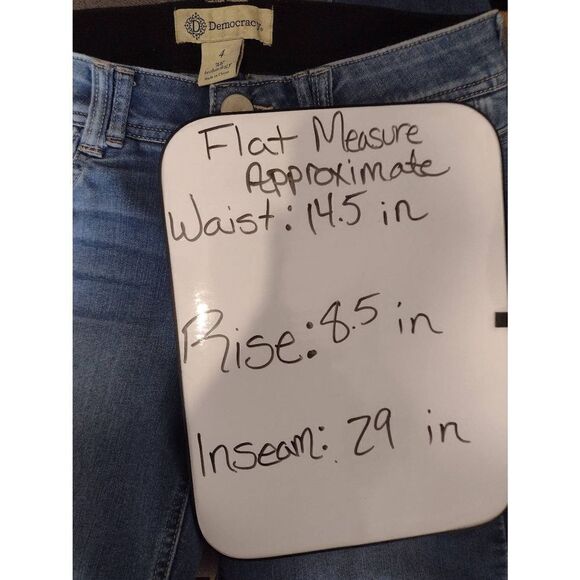 Democracy
4
Flat Measure
Approximate
Waist: 14.5 in
Rise: 8.5 in
Inseam: 29 in